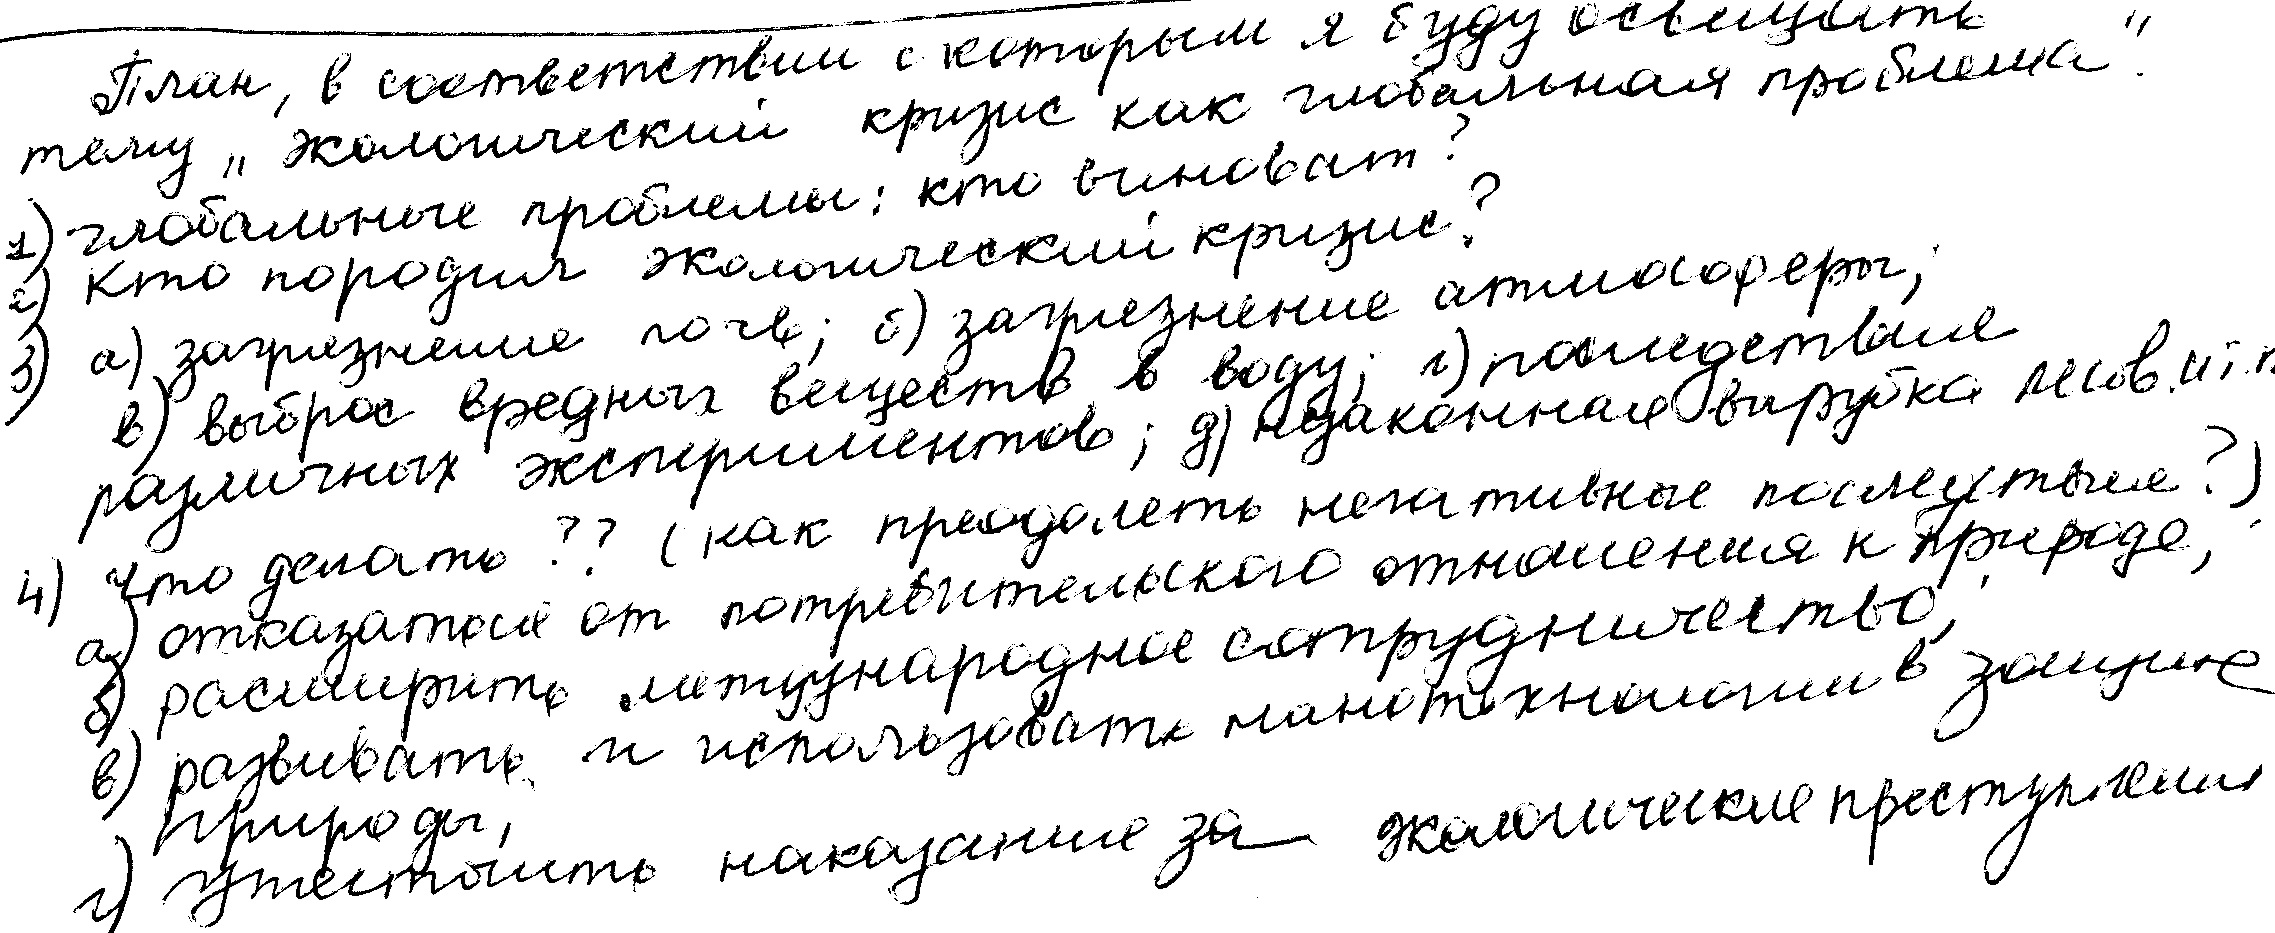 План, в соответствии с которым я буду освещать
тему „экологический кризис как глобальная проблема".
1) глобальные проблемы: кто виноват?
2) Кто породил экологический кризис?
3) а) загрезнение почв; б) загрезнение атмосферы;
в) выброс вредных веществ в воду; г) последствие
различных экспериментов; д) незаконная вырубка лесов.и т.п.
4) Что делать?? (как преодолеть негативные последствие?)
а) отказаться от потребительского отношения к природе;
б) расширить международное сотрудничество;
в) развивать и использовать нанотехнологии в защите
природы;
г) ужесточить наказание за экологические преступления